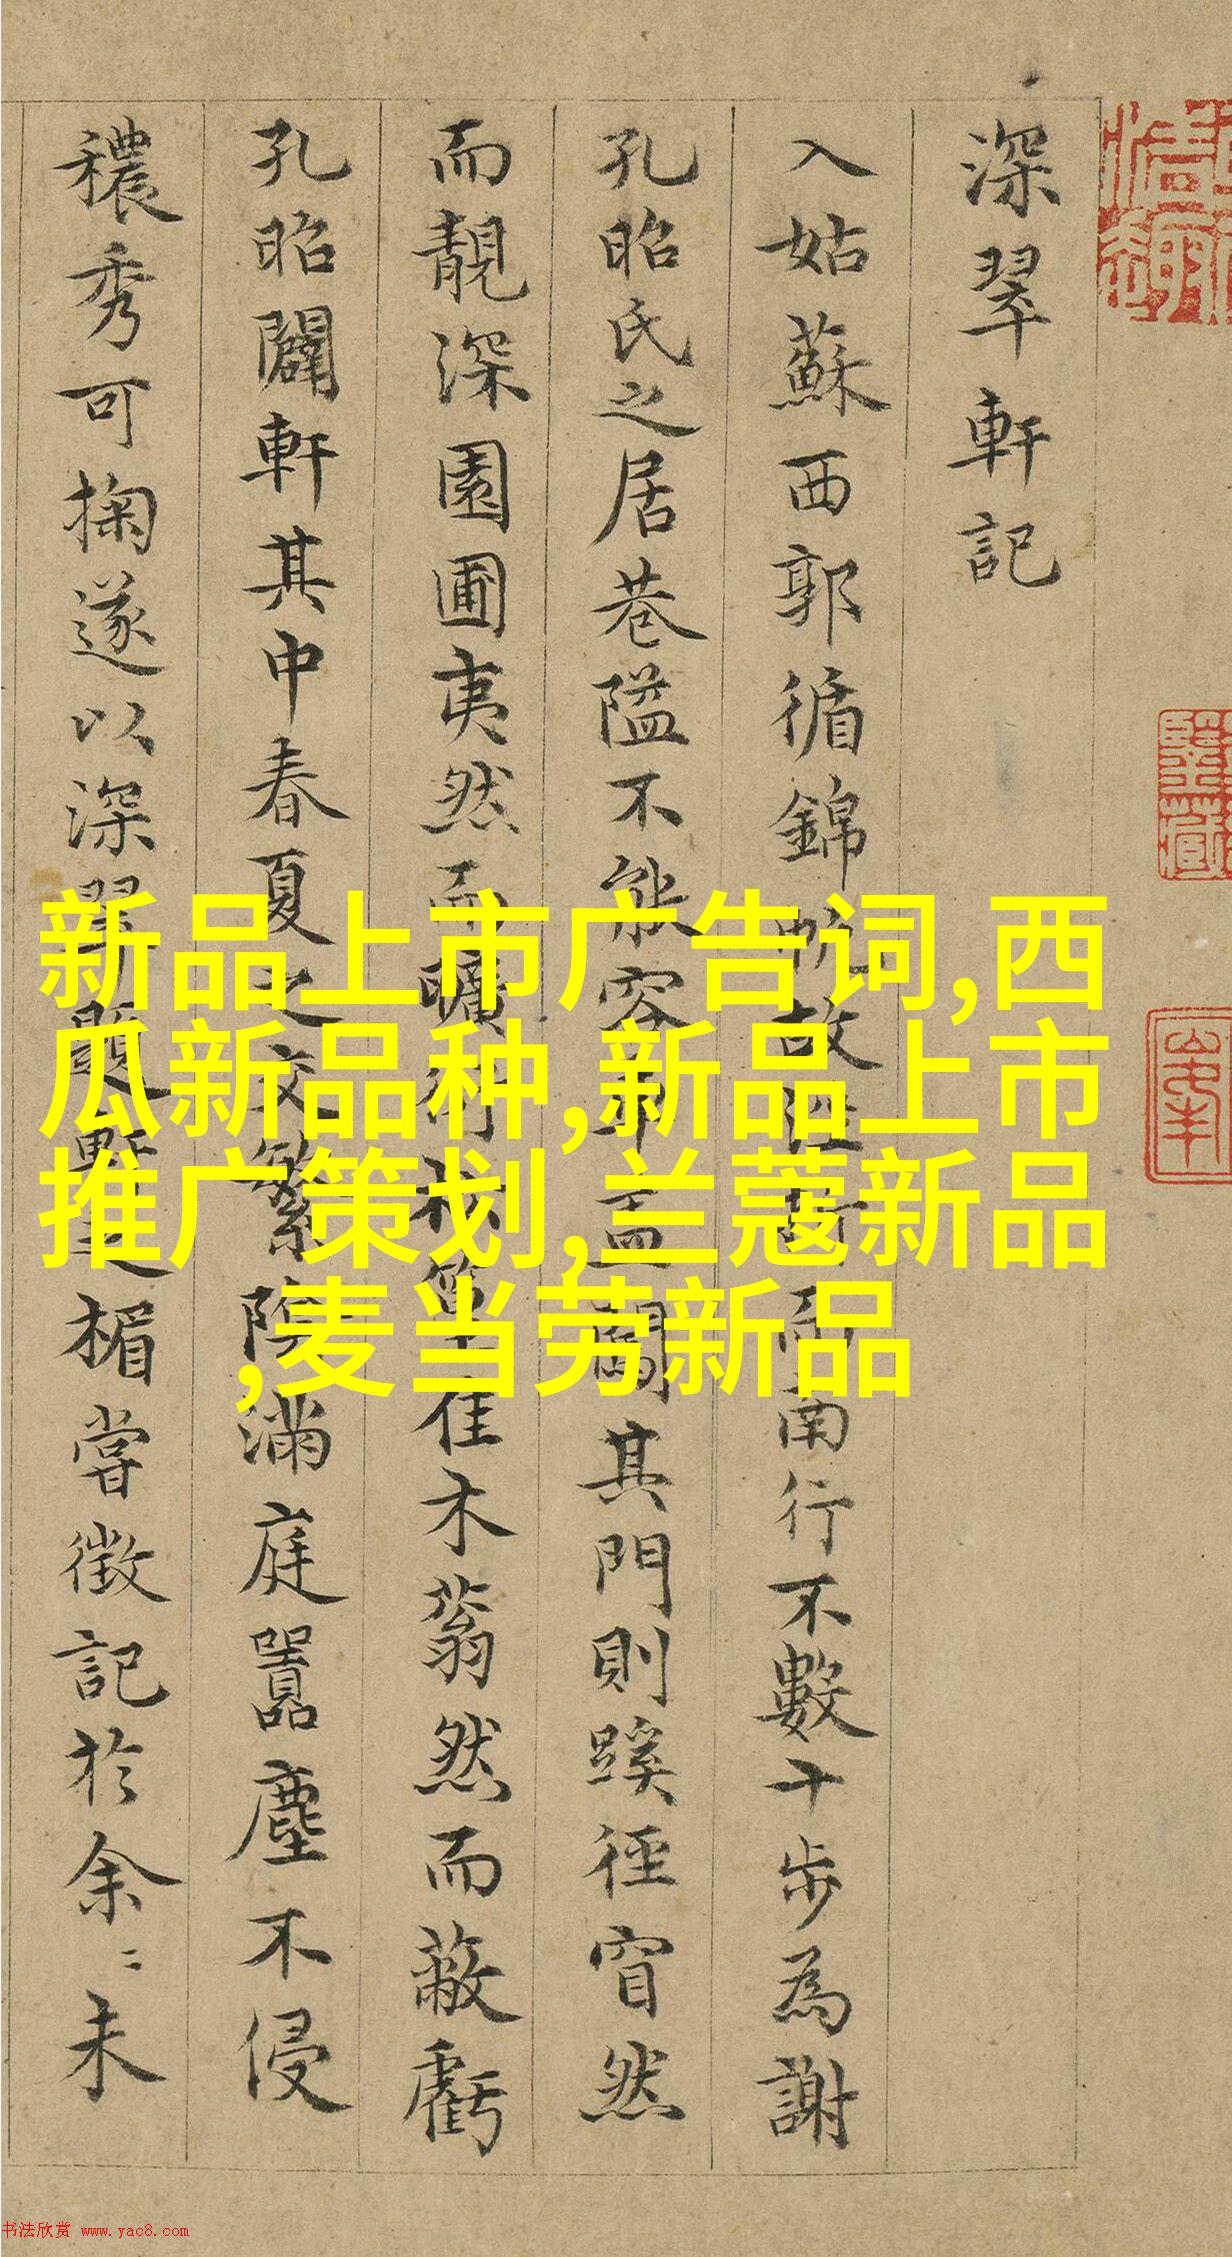 深翠軒記
入姑蘇西郭循錦帆故涇折而南行不數十步為謝
孔昭氏之居巷隘不能容車蓋闖其門則蹊徑窅然
而靚深園圃夷然而曠衍松篁佳木蓊然而蔽虧
孔昭闢軒其中春夏之交繁陰滿庭囂塵不侵
穠秀可掬遂以深翠題軒之楣嘗徵記於余〻未
新品上市广告词,西
瓜新品种,新品上市
推广策划,兰蔻新品
,麦当劳新品
书法欣赏 www.yac8.com